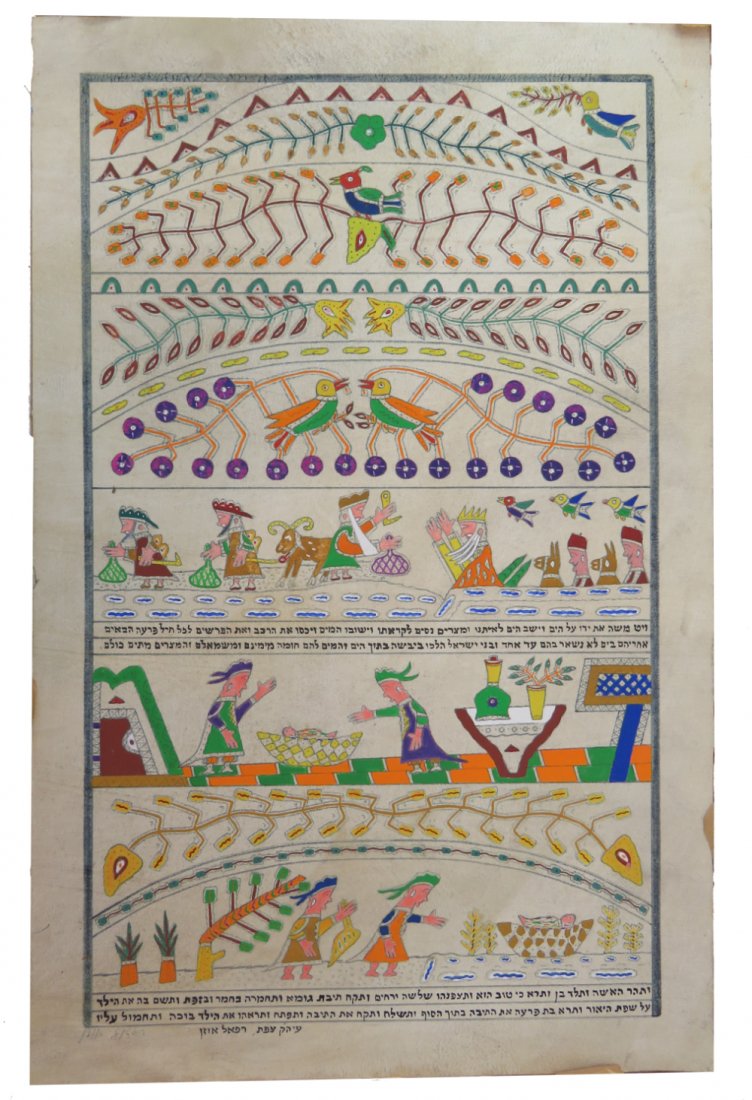 ויט משה את ידו על הים וישב הים לאיתנו ומצרים נסים לקראתו וישובו המים ויכסו את הרכב ואת הפרשים לכל חיל פרעה הבאים
אחריהם בים לא נשאר בהם עד אחד ובני ישראל הלכו ביבשה בתוך הים והמים להם חומה מימינם ומשמאלם והמצרים מתים כולם
ותהר האשה ותלד בן ותרא כי טוב הוא ותצפנהו שלשה ירחים ותקח תיבת גומא ותחמרה בחמר ובזפת ותשם בה את הילד
על שפת היאור ותרא בת פרעה את התיבה בתוך הסוף ותשלח ותקח את התיבה ותפתח ותראהו את הילד בוכה ותחמול עליו
עיהק צפת, רפאל אוזן